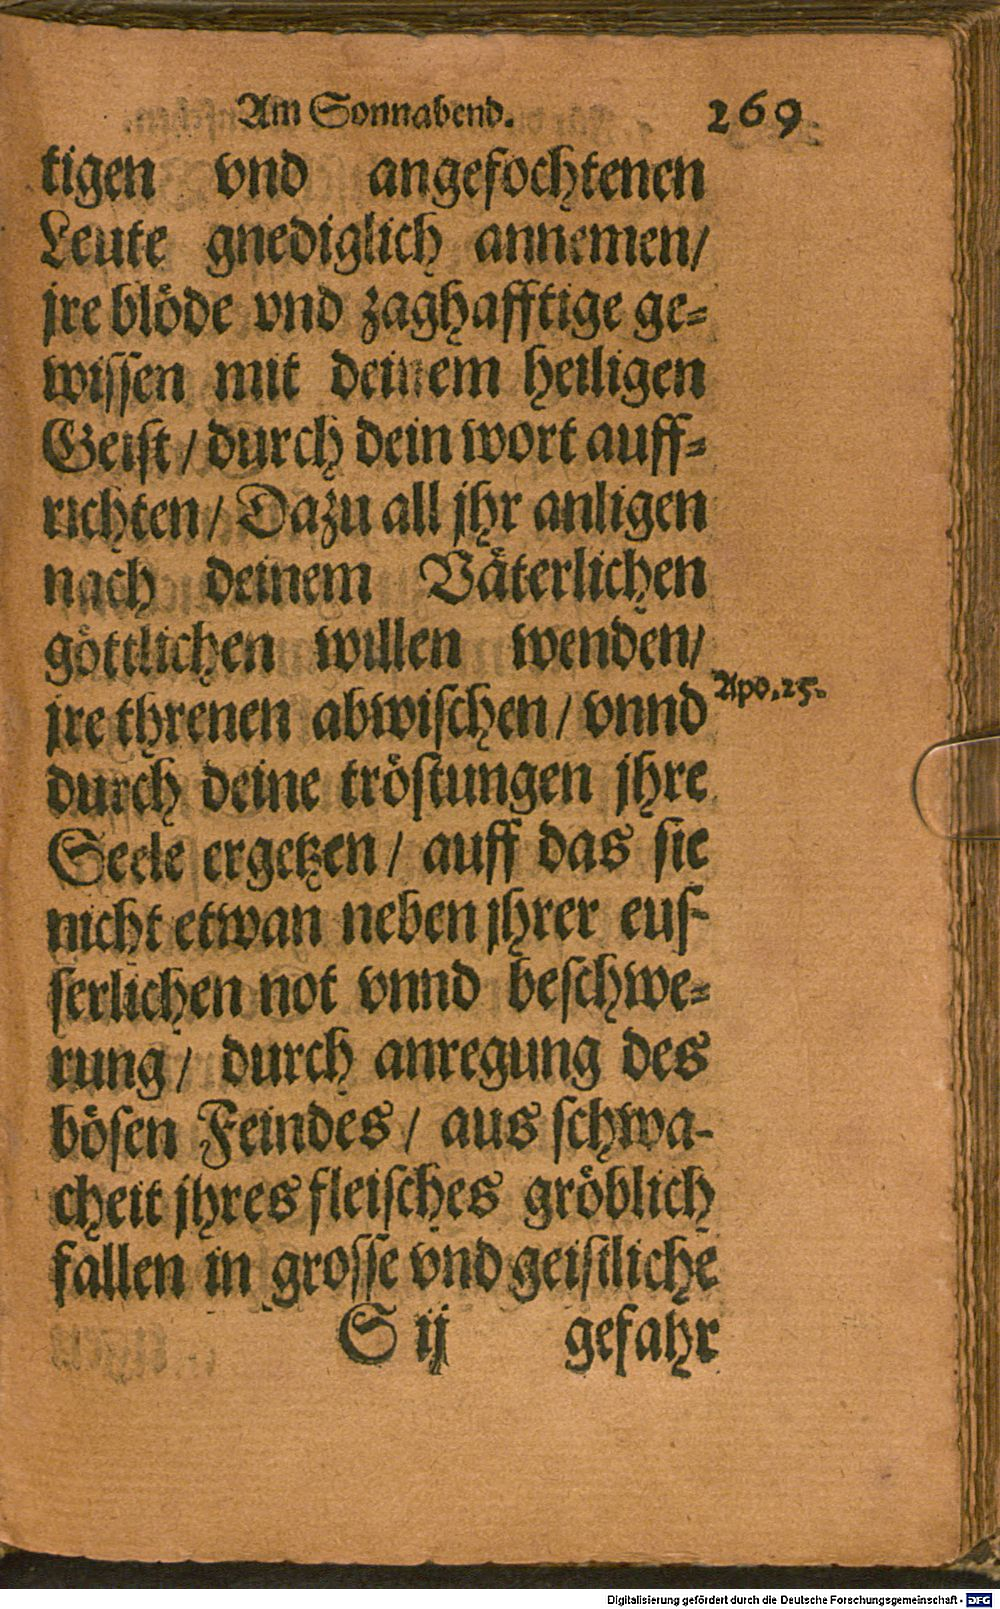 Am Sonnabend. 269
tigen vnd angefochtenen
Leute gnediglich annemen/
jre blöde vnd zaghafftige ge-
wissen mit deinem heiligen
Geist / durch dein wort auff-
richten / Dazu all jhr anligen
nach deinem Väterlichen
göttlichen willen wenden/
jre threnen abwischen / vnnd
Apo. 25.
durch deine tröstungen jhre
Seele ergetzen / auff das sie
nicht etwan neben jhrer eus-
serlichen not vnnd beschwe-
rung / durch anregung des
bösen Feindes / aus schwa-
cheit jhres fleisches gröblich
fallen in grosse vnd geistliche
S ij gefahr
Digitalisierung gefördert durch die Deutsche Forschungsgemeinschaft - DFG